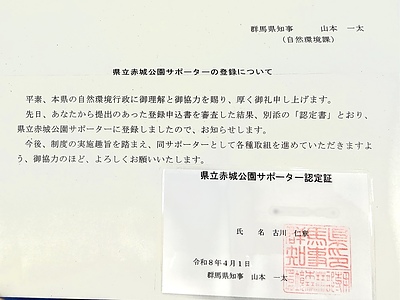 群馬県知事　山本　一太
（自然環境課）
県立赤城公園サポーターの登録について
平素、本県の自然環境行政に御理解と御協力を賜り、厚く御礼申し上げます。
先日、あなたから提出のあった登録申込書を審査した結果、別添の「認定書」とおり、
県立赤城公園サポーターに登録しましたので、お知らせします。
今後、制度の実施趣旨を踏まえ、同サポーターとして各種取組を進めていただきますよ
う、御協力のほど、よろしくお願いいたします。
県立赤城公園サポーター認定証
氏　名　古川　仁
令和８年４月１日
群馬県知事　山本　一太